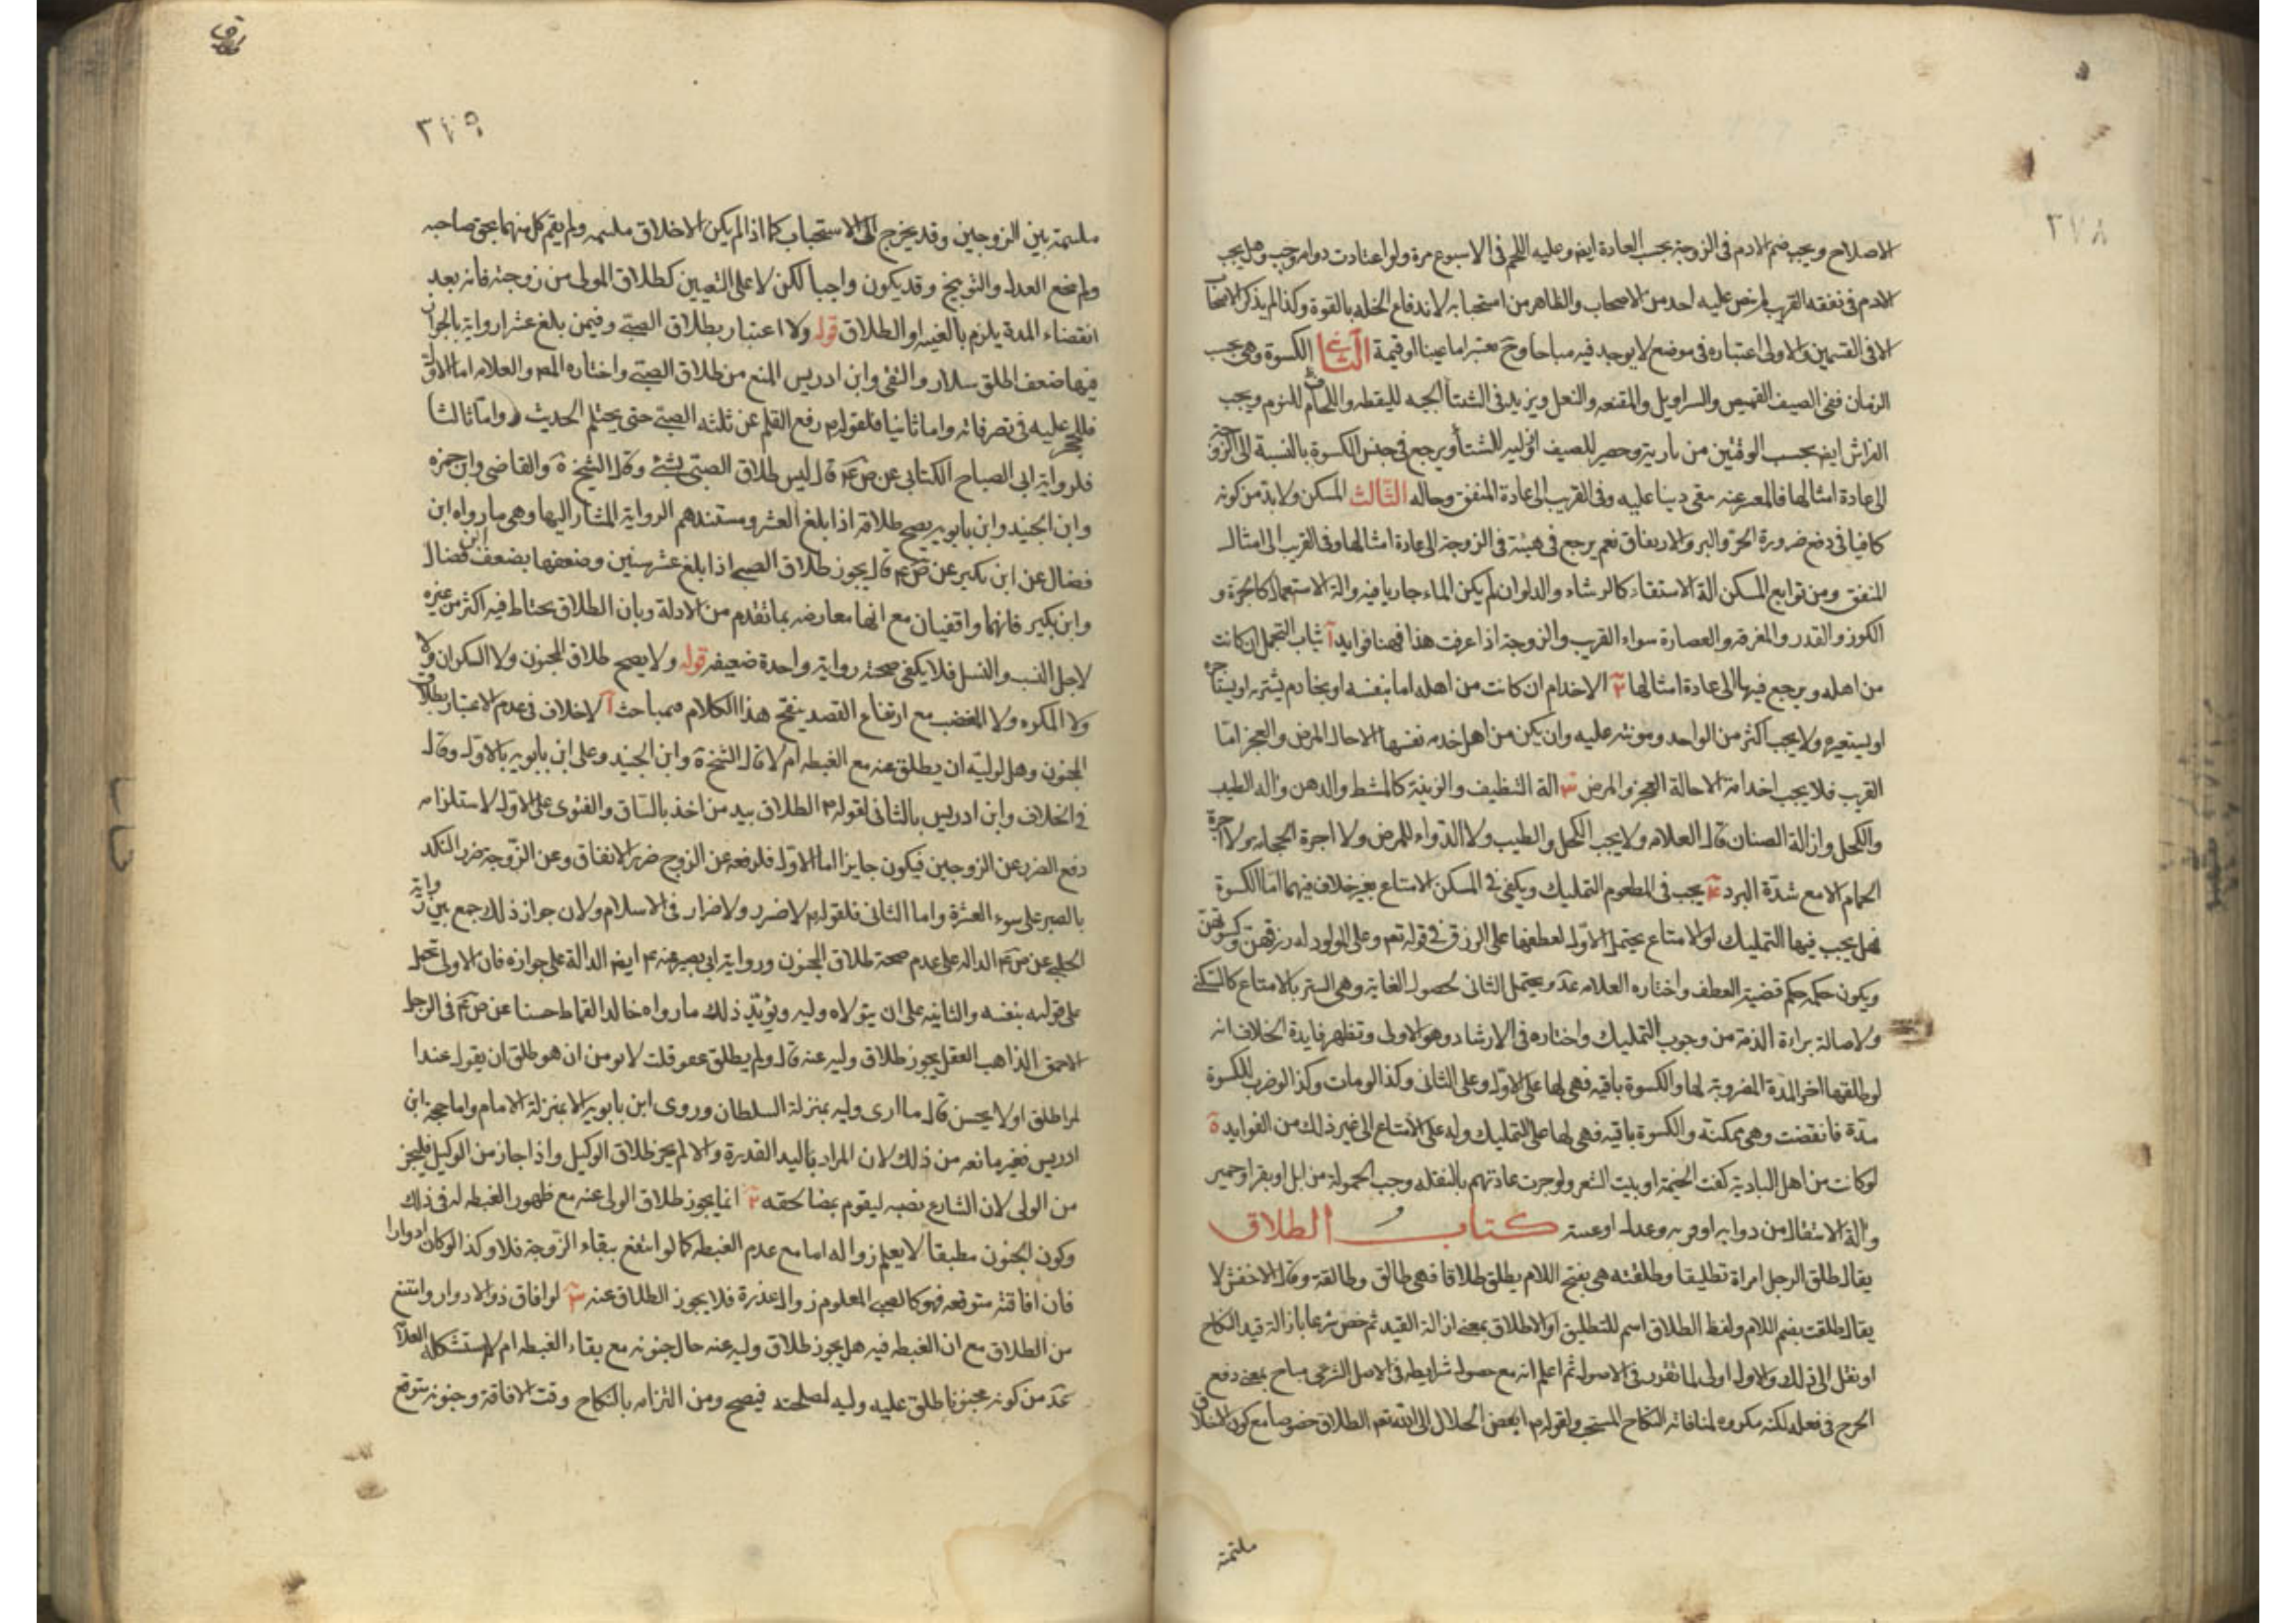 ٣٧٨
الاصلاح ويجب ضم الادم فى الزوجة بحسب العادة ايض وعليه اللحم فى الاسبوع مرة ولو اعتادت دوامه وجب وهل يجب
الادم فى نفقه القريب لم ينص عليه احد من الاصحاب والظاهر من استحبابه لاندفاع الخله بالقوة وكذا لم يذكر الاصحاب
الا فى القسمين والاولى اعتباره فى موضع لا يوجد فيه مباحا وح معتبر اما عينا او قيمة الثانى الكسوة وهى بحسب
الزمان ففى الصيف القميص والسراويل والمقنعه والنعل ويزيد فى الشتا الجبه لليقظه واللحاف للنوم ويجب
الفراش ايض بحسب الوقتين من بارية وحصير للصيف او لبد للشتا ويرجع فى جنس الكسوة بالنسبة الى الزوجة
الى عادة امثالها فالمعسر عنه بقى دينا عليه وفى القريب الى عادة المنفق وحاله الثالث المسكن ولابد من كونه
كافيا فى دفع ضرورة الحر والبرد والارتفاق نعم يرجع فى هيئة فى الزوجة الى عادة امثالها وفى القريب الى امثال
المنفق ومن توابع المسكن الة الاستقاء كالرشاء والدلو ان لم يكن الماء جاريا فيه والة الاستعمال كالجرة و
الكوز والقدر والمغرفه والعصارة سواء القريب والزوجة اذا عرفت هذا فهنا فوايد آ ثياب التجمل ان كانت
من اهله ويرجع فيها الى عادة امثالها ٢ الاخدام ان كانت من اهله اما بنفسه او بخادم يشتريه او يستاجره
او يستعيره ولا يجب اكثر من الواحد ومونته عليه وان لم يكن من اهل خدمه نفسها الا حال المرض والعجز امّا
القريب فلا يجب اخدامه الا حالة العجز والمرض ٣ الة التنظيف والزينة كالمشط والدهن والة الطيب
والكحل وازالة الصنان قال العلامه ولا يجب الكحل والطيب ولا الدواء للمرض ولا اجرة الحجامه ولا اجرة
الحمام الا مع شدّة البرد ٤ يجب فى المطعوم التمليك ويكفى فى المسكن الامتاع بغير خلاف فيهما امّا الكسوة
فهل يجب فيها التمليك او الامتاع يحتمل الاوّل لعطفها على الرزق فى قوله تعم وعلى المولود له رزقهنّ وكسوتهنّ
ويكون حكمه حكم قضية العطف واختاره العلامه عد ويحتمل الثانى لحصول الغاية وهى الستر بالامتاع كالسكنى
ولاصالة براءة الذمة من وجوب التمليك واختاره فى الارشاد وهو الاولى وتظهر فايدة الخلاف انه
لو طلقها اخر المدة المضروبة لها والكسوة باقيه فهى لها على الاول وعلى الثانى وكذا لو مات وكذا لو ضرب للكسوة
مدّة فانقضت وهى ممكنة والكسوة باقيه فهى لها على التمليك وله على الامتاع الى غير ذلك من الفوايد ة
لو كانت من اهل البادية كفت الخيمة او بيت الشعر ولو جرت عادتهم بالنقله وجب الحمولة من ابل او بقر او حمير
والة الانتقال من دوابه او قربه وعدل او عسته كتاب الطلاق
يقال طلق الرجل امراة تطليقا وطلقته هى بفتح اللام يطلق طلاقا فهى طالق وطالقة وقال الاخفش لا
يقال طلقت بضم اللام ولفظ الطلاق اسم للتطليق او الاطلاق بمعنى ازالة القيد ثم خص شرعا بازالة قيد النكاح
او نقل الى ذلك والاول اولى لما تقرر فى الاصول ثم اعلم انه مع حصول شرايطه فى الاصل الشرعى مباح بمعنى دفع
الحرج فى فعله لكنه مكروه لمنافاته النكاح المستحب ولقوله م ابغض الحلال الى الله تعم الطلاق خصوصا مع كون الاخلاق
ملتئمة
٣٧٩
ملتئمة بين الزوجين وقد يخرج الى الاستحباب كما اذا لم يكن الاخلاق ملتئمه ولم يقم كل منهما بحق صاحبه
ولم ينجع العدل والتوبيخ وقد يكون واجبا لكن لا على التعيين كطلاق المولى من زوجته فانه بعد
انقضاء المدة يلزم بالفيئه او الطلاق قوله ولا اعتبار بطلاق الصبى وفيمن بلغ عشرا رواية بالجواز
فيها ضعف اطلق سلار والتقى وابن ادريس المنع من طلاق الصبى واختاره المصر والعلامه اما الاول
فللحجر عليه فى تصرفاته واما ثانيا فلقوله م رفع القلم عن ثلثه الصبى حتى يحتلم الحديث واما ثالثا
فلرواية ابى الصباح الكنانى عن ص ع قال ليس طلاق الصبى بشئ وقال الشيخ ة والقاضى وابن حمزه
وابن الجنيد وابن بابويه يصح طلاقه اذا بلغ العشر ومستندهم الرواية المشار اليها وهى ما رواه ابن
فضال عن ابن بكير عن ص ع قال يجوز طلاق الصبى اذا بلغ عشر سنين وضعفها بضعف ابن فضال
وابن بكير فانهما واقفيان مع انها معارضه بما تقدم من الادلة وبان الطلاق يحتاط فيه اكثر من غيره
لاجل النسب والنسل فلا يكفى صحته رواية واحدة ضعيفه قوله ولا يصح طلاق المجنون ولا السكران ولا
ولا المكره ولا المغضب مع ارتفاع القصد ينقح هذا الكلام بمباحث آ لاخلاف فى عدم الاعتبار بطلاق
المجنون وهل لوليّه ان يطلق عنه مع الغبطه ام لا قال الشيخ ة وابن الجنيد وعلى ابن بابويه بالاول وقال
فى الخلاف وابن ادريس بالثانى لقوله م الطلاق بيد من اخذ بالساق والفتوى على الاول لاستلزامه
دفع الضرر عن الزوجين فيكون جايزا اما الاول فلرفعه عن الزوج ضرر الانفاق وعن الزوجة ضرر النكد
بالصبر على سوء العشرة واما الثانى فلقوله م لا ضرر ولا ضرار فى الاسلام ولان جواز ذلك جمع بين رواية
الحلبى عن ص ع الداله على عدم صحة طلاق المجنون ورواية ابى بصير عنه م ايض الدالة على جوازه فان الاولى تحمل
على قوله بنفسه والثانيه على ان يتولاه وليه ويؤيد ذلك ما رواه خالد القماط حسنا عن ص ع فى الرجل
الاحمق الذاهب العقل يجوز طلاق وليه عنه قال ولم يطلق هو قلت لا يومن ان هو طلق ان يقول غدا
لم اطلق او لا يحسن قال ما ارى وليه بمنزلة السلطان وروى ابن بابويه الا بمنزلة الامام واما حجة ابن
ادريس فغير مانعه من ذلك لان المراد باليد القدرة والا لم يجز طلاق الوكيل واذا جاز من الوكيل فليجز
من الولى لان الشارع نصبه ليقوم بمصالحه ٢ انما يجوز طلاق الولى عنه مع ظهور الغبطه له فى ذلك
وكون الجنون مطبقا لا يعلم زواله اما مع عدم الغبطه كما لو انتفع ببقاء الزوجة فلا وكذا لو كان ادوارا
فان افاقته متوقعه فهو كالصبى المعلوم زوال عذره فلا يجوز الطلاق عنه ٣ لو افاق ذو الادوار وامتنع
من الطلاق مع ان الغبطه فيه هل يجوز طلاق وليه عنه حال جنونه مع بقاء الغبطه ام لا استشكله العلامه
عد من كونه مجنونا طلق عليه وليه لمصلحته فيصح ومن التزامه بالنكاح وقت الافاقة وجنونه يتوقع